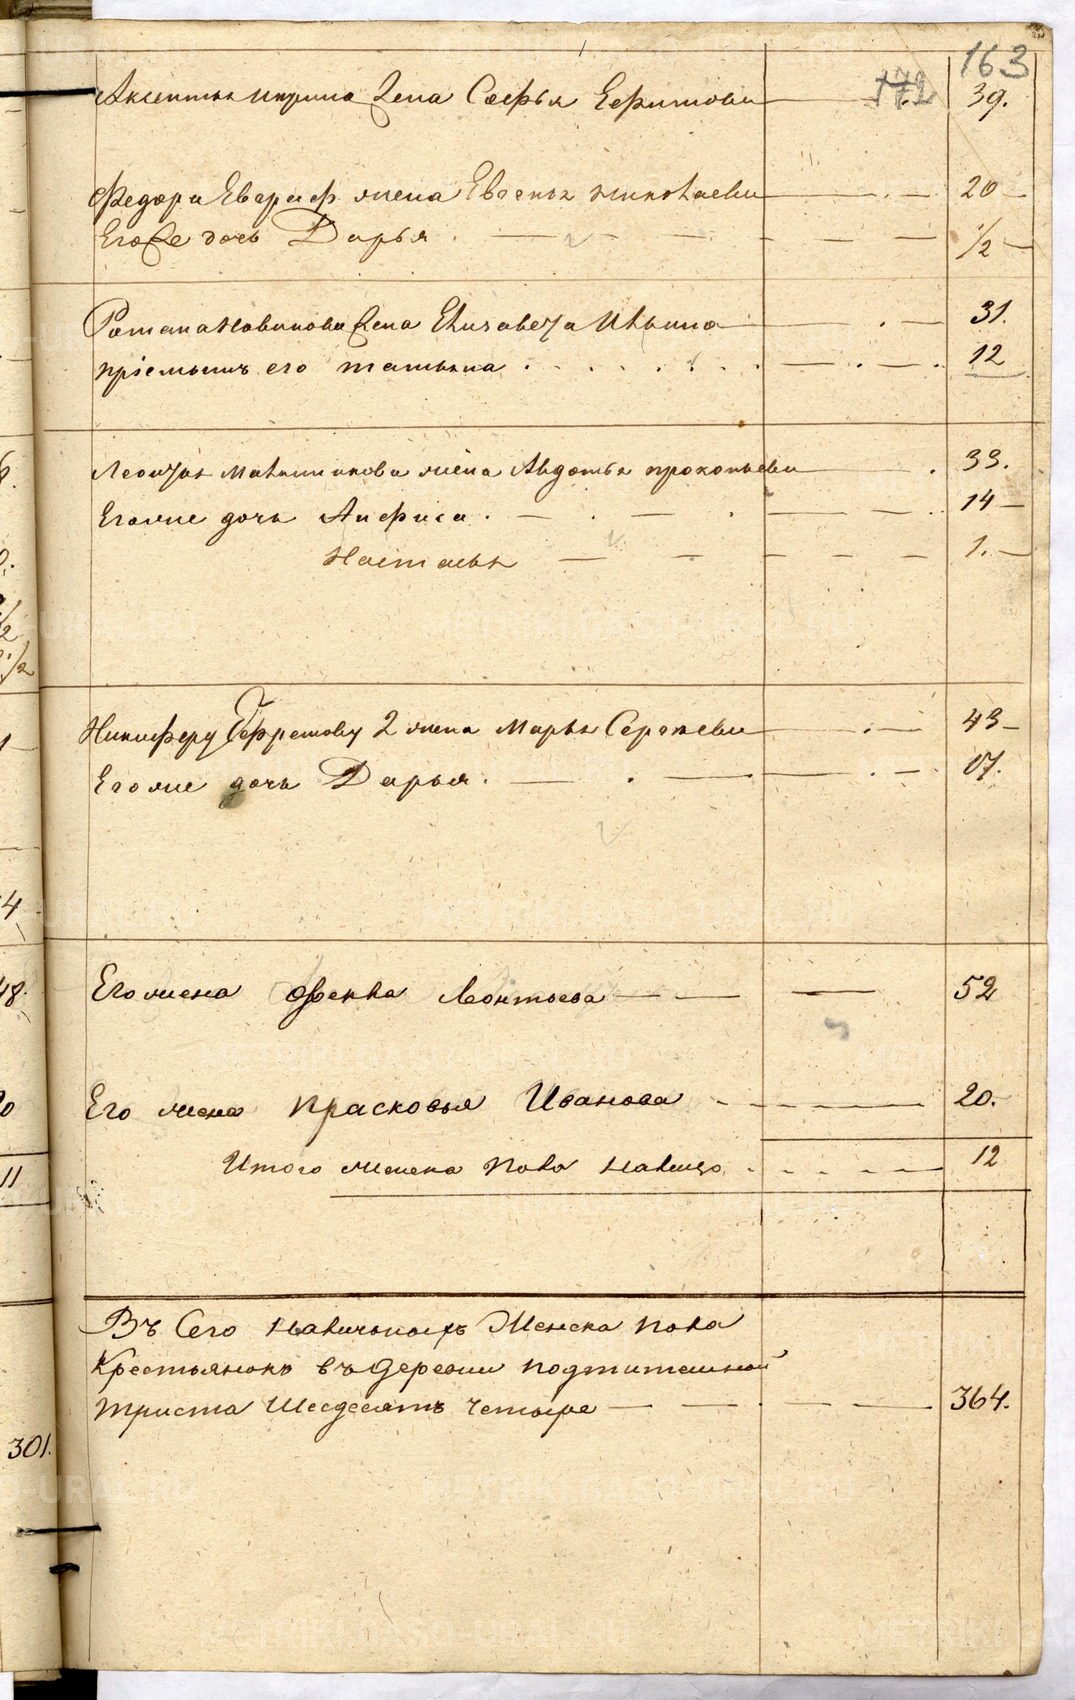 163
172
Аксентья жена Софья Ефимова 39.
Федора Евграф. жена Евгенья николаева 20
Егоже дочь Дарья 1/2
Романа Новикова жена Елизавета Ильина 31.
пріемышъ его татьяна 12
Леонтья жена Авдотья прокопьева 33.
Егоже дочь Анфиса 14
Настасья 1.
Никифору Ефремову 2 жена Марья Сергеева 43
Егоже дочь Дарья 17.
Его жена Фекла Леонтьева 52
Его жена Прасковья Иванова 20.
Итого женска пола налицо 12
11
Въ Сего наличность Женска пола
Крестьянокъ въ деревни подтитешной
триста Шесдесятъ четыре 364.
301.